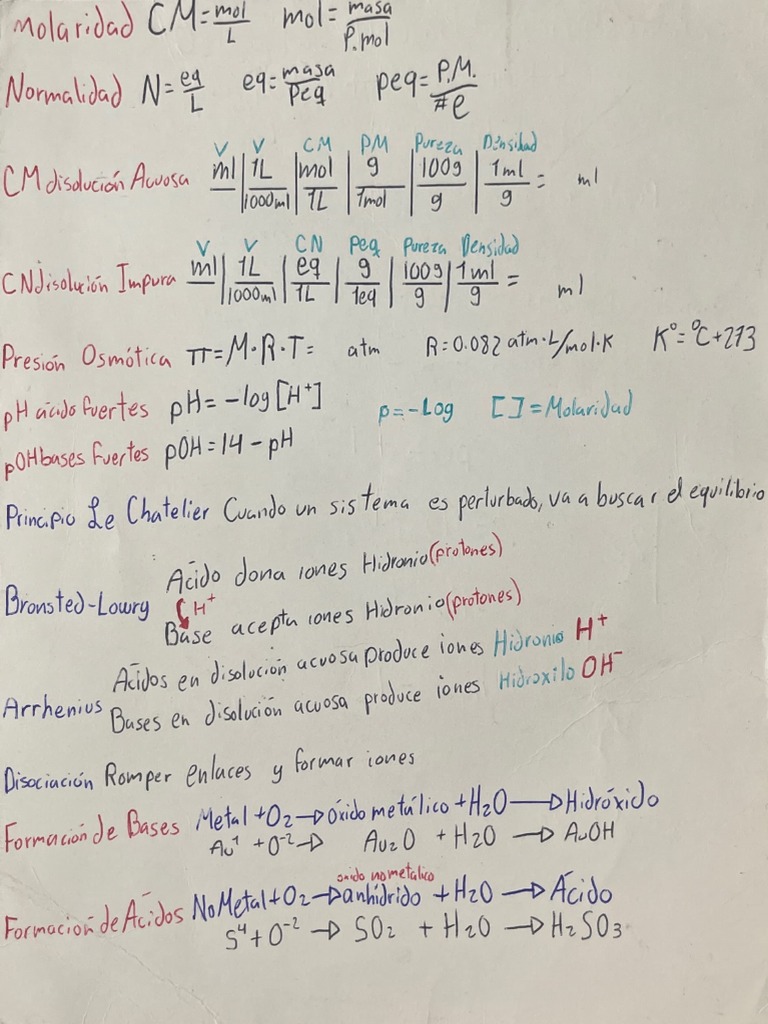 Molaridad CM=mol/L mol=masa/P.mol
Normalidad N=eq/L eq=masa/Peq peq=P.M./#e
V V CM PM Pureza Densidad
CM disolución Acuosa ml/ | 1L/1000ml | mol/1L | g/1mol | 100g/g | 1ml/g = ml
V V CN Peq Pureza Densidad
CN disolución Impura ml/ | 1L/1000ml | eq/1L | g/1eq | 100g/g | 1ml/g = ml
Presión Osmótica π=M·R·T= atm R=0.082 atm·L/mol·K K°=°C+273
pH ácido fuertes pH=-log[H⁺] p=-Log []=Molaridad
pOH bases fuertes pOH=14-pH
Principio Le Chatelier Cuando un sistema es perturbado, va a buscar el equilibrio
Ácido dona iones Hidronio (protones)
Bronsted-Lowry H⁺
Base acepta iones Hidronio (protones)
Ácidos en disolución acuosa produce iones Hidronio H⁺
Arrhenius Bases en disolución acuosa produce iones Hidroxilo OH⁻
Disociación Romper enlaces y formar iones
Formación de Bases Metal+O2→óxido metálico+H2O→Hidróxido
Au⁺¹+O⁻²→ Au2O + H2O → AuOH
oxido no metalico
Formación de Ácidos No Metal+O2→anhídrido+H2O→Ácido
S⁴+O⁻²→SO2 + H2O→H2SO3